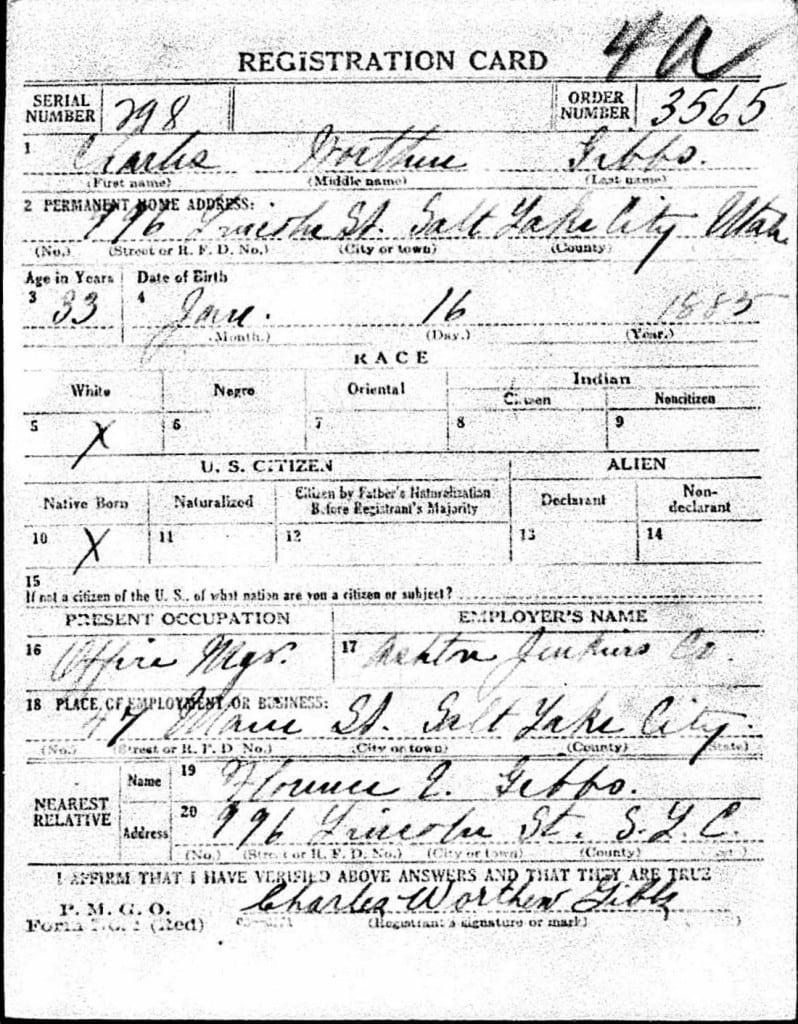 4A
REGISTRATION CARD
SERIAL NUMBER 298 ORDER NUMBER 3565
1 Charles Worthen Gibbs.
(First name) (Middle name) (Last name)
2 PERMANENT HOME ADDRESS:
996 Lincoln St. Salt Lake City Utah
(No.) (Street or R. F. D. No.) (City or town) (County)
Age in Years Date of Birth
3 33 4 Jan. 16 1885
(Month.) (Day.) (Year.)
RACE
White Negro Oriental Indian
Citizen Noncitizen
5 X 6 7 8 9
U. S. CITIZEN ALIEN
Native Born Naturalized Citizen by Father's Naturalization Before Registrant's Majority Declarant Non-declarant
10 X 11 12 13 14
15
If not a citizen of the U. S., of what nation are you a citizen or subject?
PRESENT OCCUPATION EMPLOYER'S NAME
16 Office Mgr. 17 Ashton Jenkins Co.
18 PLACE OF EMPLOYMENT OR BUSINESS:
47 Main St. Salt Lake City.
(No.) (Street or R. F. D. No.) (City or town) (County) (State)
NEAREST RELATIVE Name 19 Florence Gibbs.
Address 20 996 Lincoln St. S. L. C.
(No.) (Street or R. F. D. No.) (City or town) (County)
I AFFIRM THAT I HAVE VERIFIED ABOVE ANSWERS AND THAT THEY ARE TRUE
P. M. G. O. Charles Worthen Gibbs
Form No. 1 (Red) (Registrant's signature or mark)